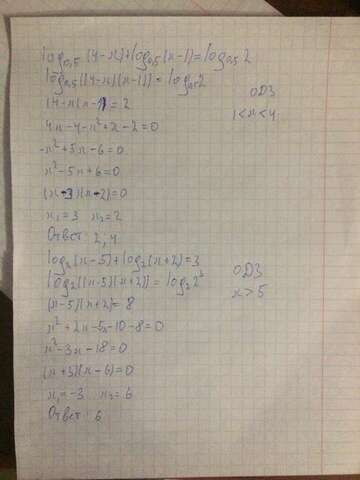 log₀,₅ (4-x)+log₀,₅(x-1)=log₀,₅ 2
log₀,₅((4-x)(x-1))=log₀,₅2
ОДЗ
1<x<4
(4-x)(x-1)=2
4x-4-x²+x-2=0
-x²+5x-6=0
x²-5x+6=0
(x-3)(x-2)=0
x₁=3 x₂=2
Ответ: 2; 4
log₂(x-5)+log₂(x+2)=3
ОДЗ
x>5
log₂((x-5)(x+2))=log₂2³
(x-5)(x+2)=8
x²+2x-5x-10-8=0
x²-3x-18=0
(x+3)(x-6)=0
x₁=-3 x₂=6
Ответ: 6